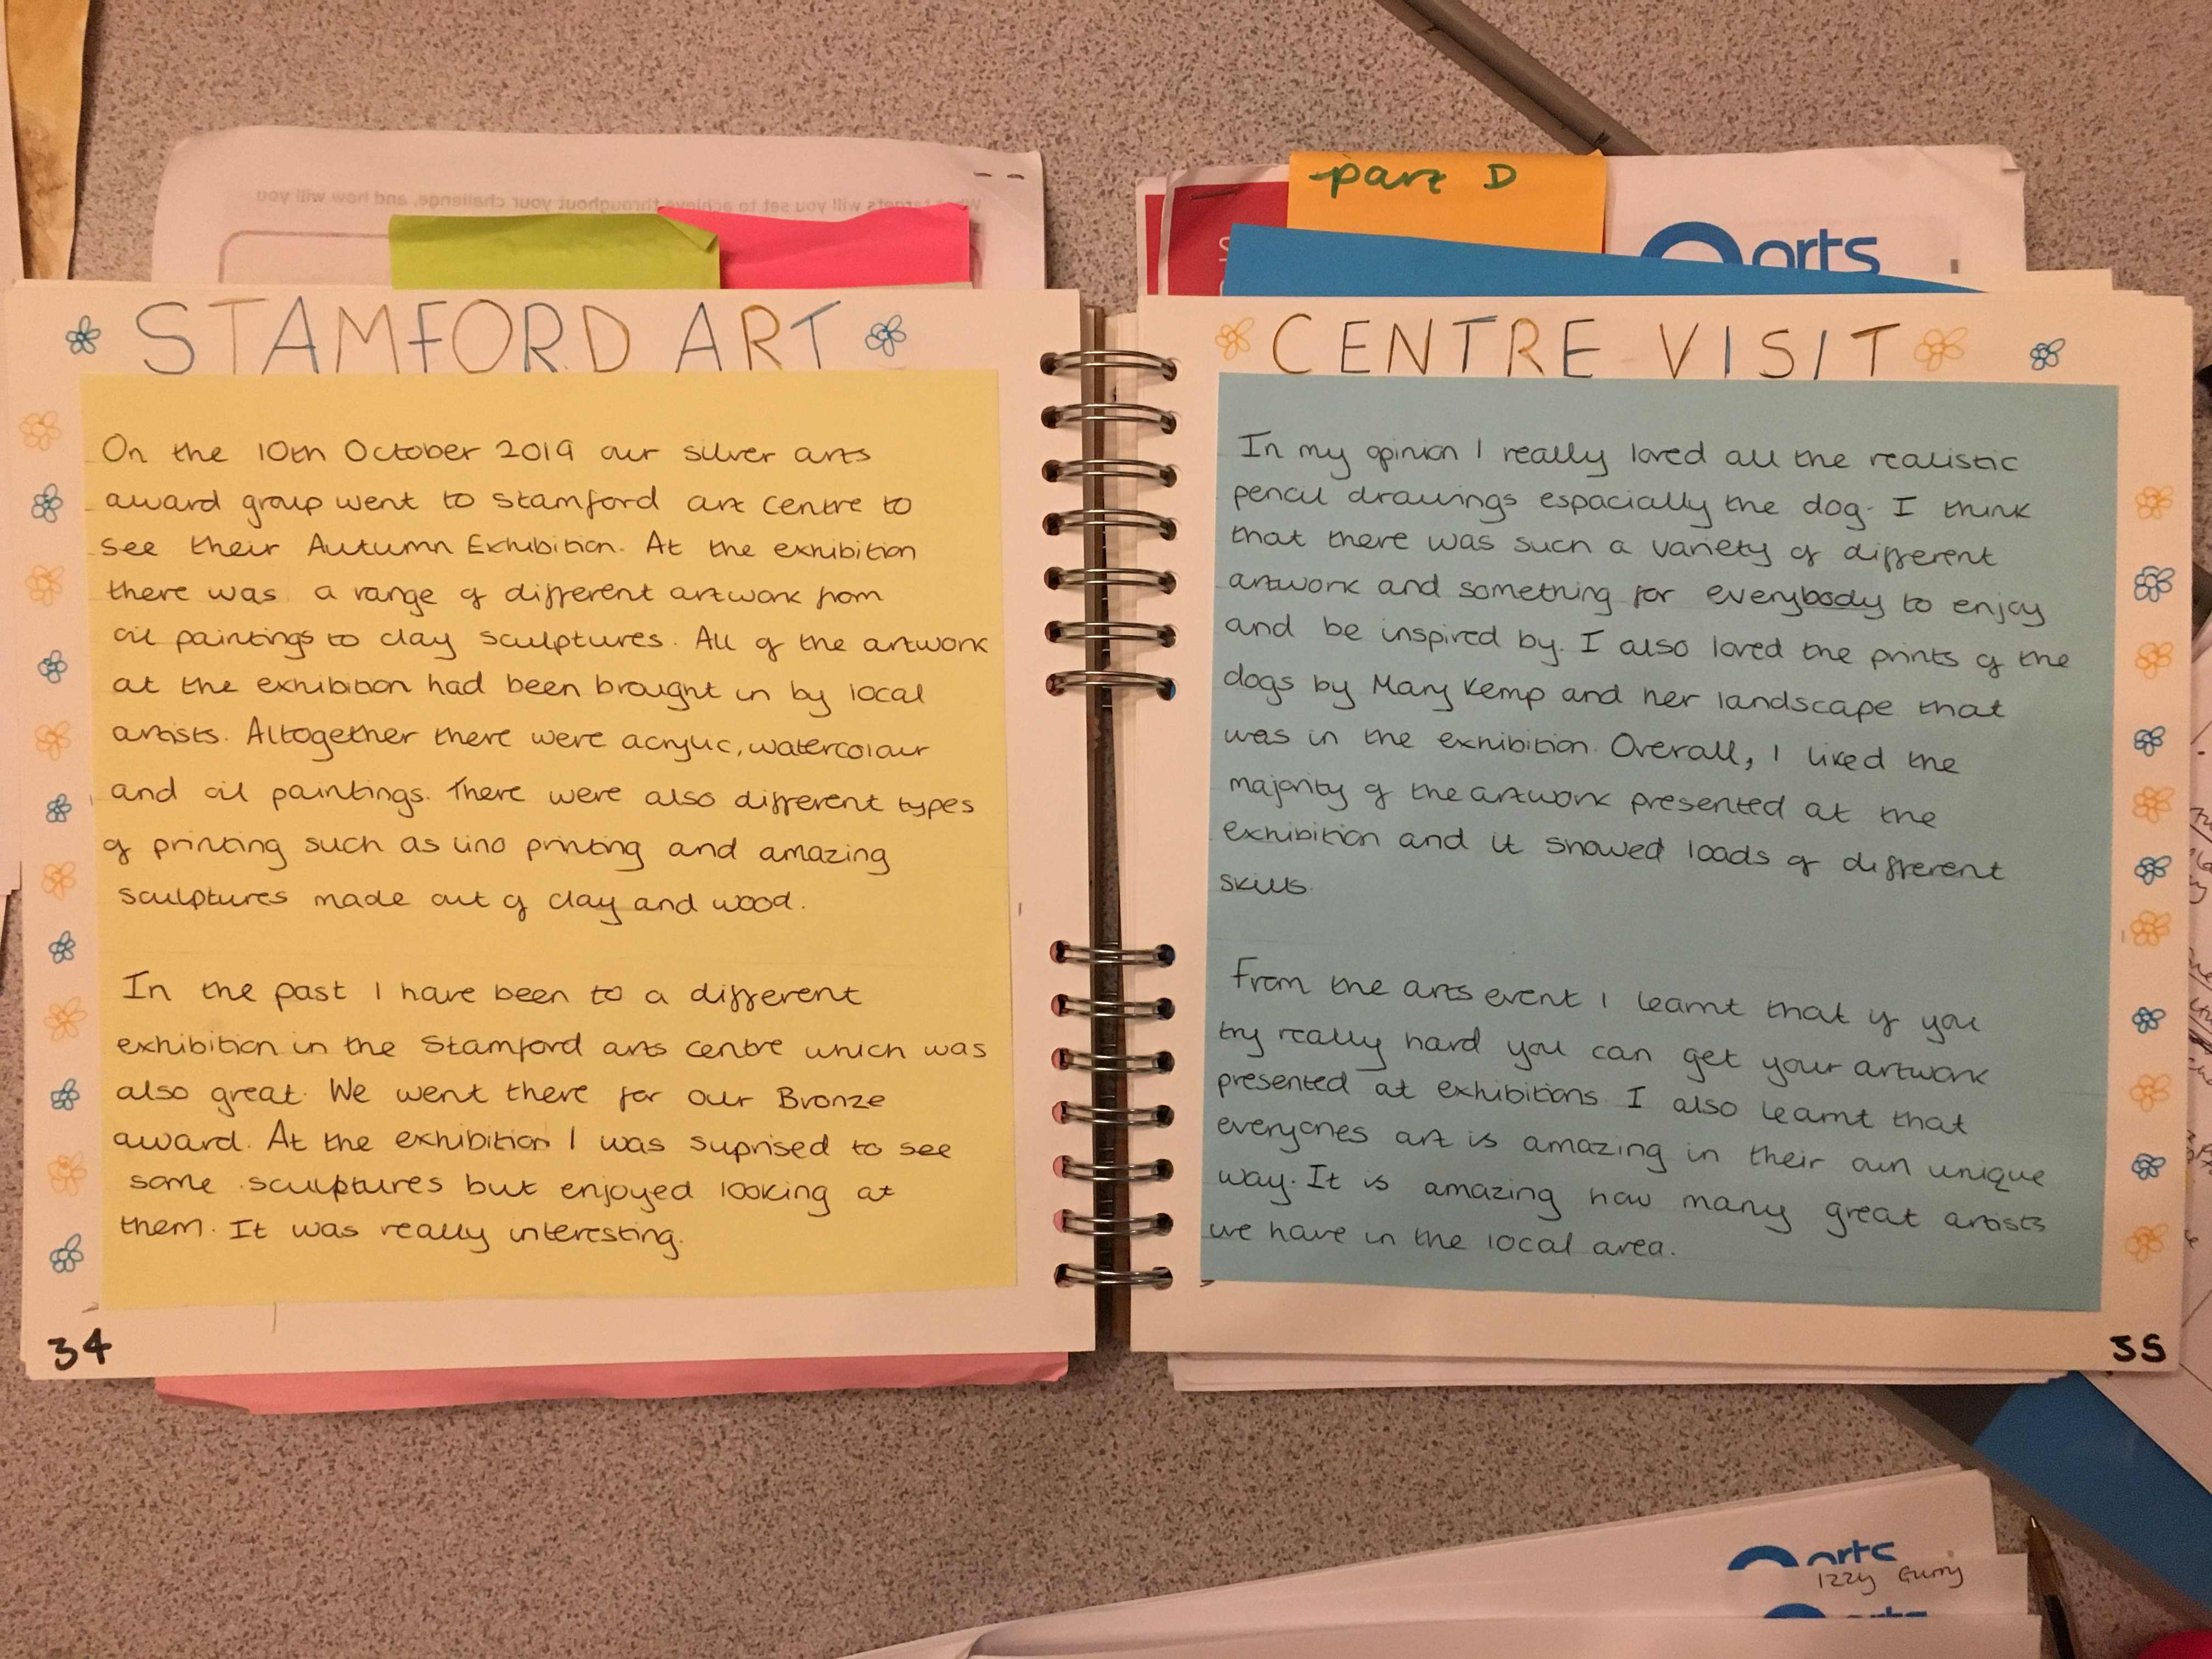 What targets will you set to achieve throughout your challenge, and how will you
part D
arts
STAMFORD ART
On the 10th October 2019 our silver arts
award group went to stamford art centre to
see their Autumn Exhibition. At the exhibition
there was a range of different artwork from
oil paintings to clay sculptures. All of the artwork
at the exhibition had been brought in by local
artists. Altogether there were acrylic, watercolour
and oil paintings. There were also different types
of printing such as lino printing and amazing
sculptures made out of clay and wood.
In the past I have been to a different
exhibition in the Stamford arts centre which was
also great. We went there for our Bronze
award. At the exhibition I was suprised to see
some sculptures but enjoyed looking at
them. It was really interesting.
34
CENTRE VISIT
In my opinion I really loved all the realistic
pencil drawings espacially the dog. I think
that there was such a variety of different
artwork and something for everybody to enjoy
and be inspired by. I also loved the prints of the
dogs by Mary Kemp and her landscape that
was in the exhibition. Overall, I liked the
majority of the artwork presented at the
exhibition and it showed loads of different
skills.
From the arts event I learnt that if you
try really hard you can get your artwork
presented at exhibitions. I also learnt that
everyones art is amazing in their own unique
way. It is amazing how many great artists
we have in the local area.
35
arts
Izzy Gurry
arts